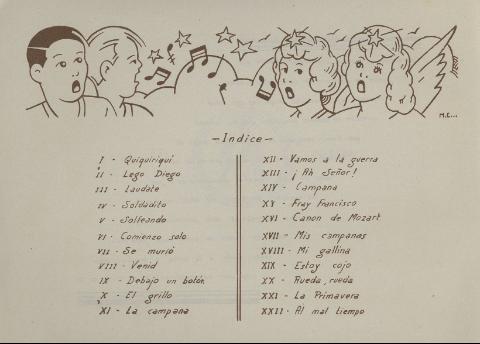 M.C...
-Indice-
I - Quiquiriquí
II - Lego Diego
III - Laudate
IV - Soldadito
V - Solfeando
VI - Comienzo solo
VII - Se murió
VIII - Venid
IX - Debajo un botón
X - El grillo
XI - La campana
XII - Vamos a la guerra
XIII - ¡Ah Señor!
XIV - Campana
XV - Fray Francisco
XVI - Canon de Mozart
XVII - Mis campanas
XVIII - Mi gallina
XIX - Estoy cojo
XX - Rueda, rueda
XXI - La Primavera
XXII - Al mal tiempo